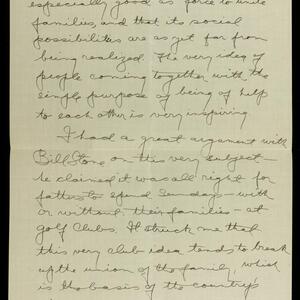 especially good as force to unite
families, and that its social
possibilities are as yet far from
being realized. The very idea of
people coming together with the
simple purpose of being of help
to each other is very inspiring.
I had a great argument with
Bill Stone on this very subject—
he claimed it was all right for
fathers to spend Sundays—with
or without their families—at
golf clubs. It struck me that
this very club idea tends to break
up the union of the family, which
is the basis of the country's